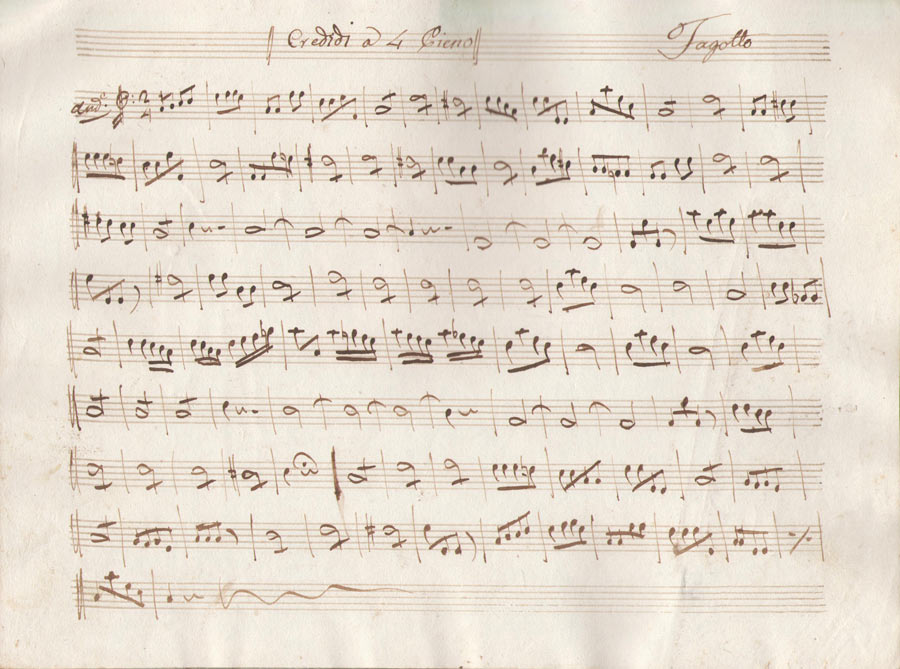 Credidi a 4 Pieno
Fagotto
And.e 2 4